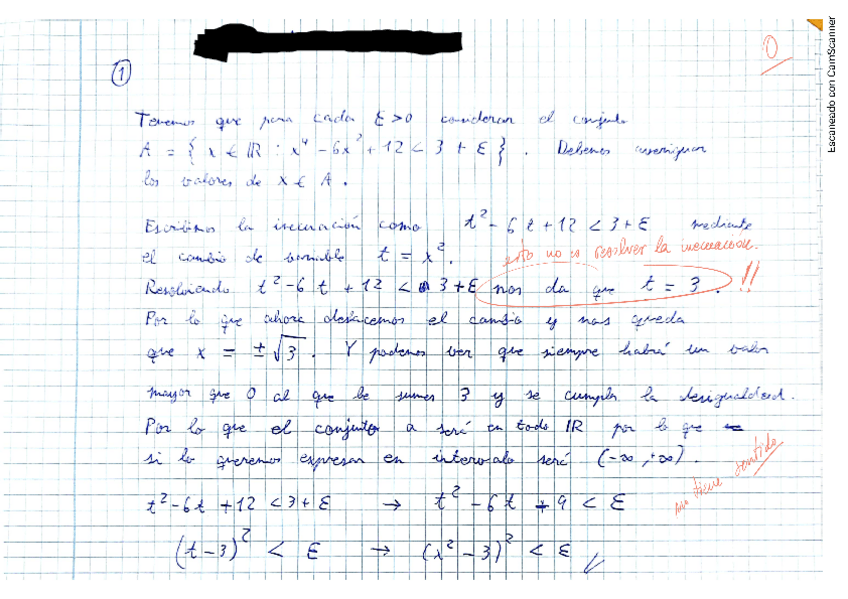 0
Escaneado con CamScanner
1
Tenemos que para cada ε > 0 consideran el conjunto
A = { x ∈ ℝ : x⁴ - 6x² + 12 < 3 + ε } . Debemos averiguar
los valores de x ∈ A .
Escribimos la inecuación como t² - 6t + 12 < 3 + ε mediante
el cambio de variable t = x².
esto no es resolver la inecuación.
Resolviendo t² - 6t + 12 < 3 + ε nos da que t = 3 . !!
Por lo que ahora deshacemos el cambio y nos queda
que x = ± √3 . Y podemos ver que siempre habrá un valor
mayor que 0 al que le sumes 3 y se cumpla la desigualdad.
Por lo que el conjunto a será en todo ℝ por lo que
si lo queremos expresar en intervalo será (-∞, +∞) .
no tiene sentido
t² - 6t + 12 < 3 + ε → t² - 6t + 9 < ε
(t - 3)² < ε → (x² - 3)² < ε